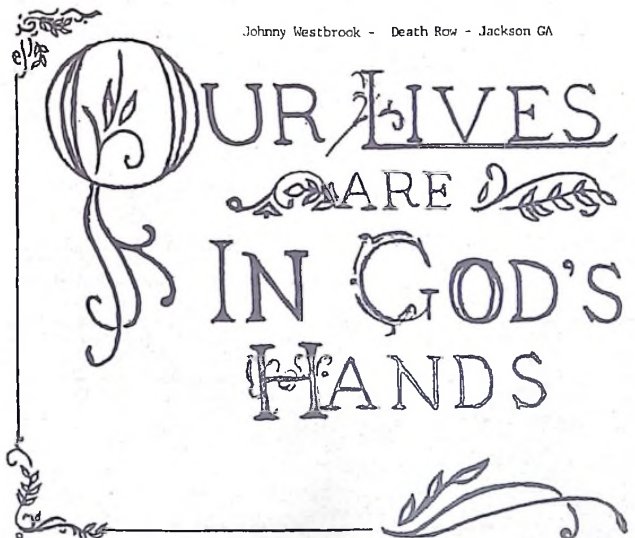 Johnny Westbrook - Death Row - Jackson GA
OUR LIVES
ARE
IN GOD'S
HANDS
md